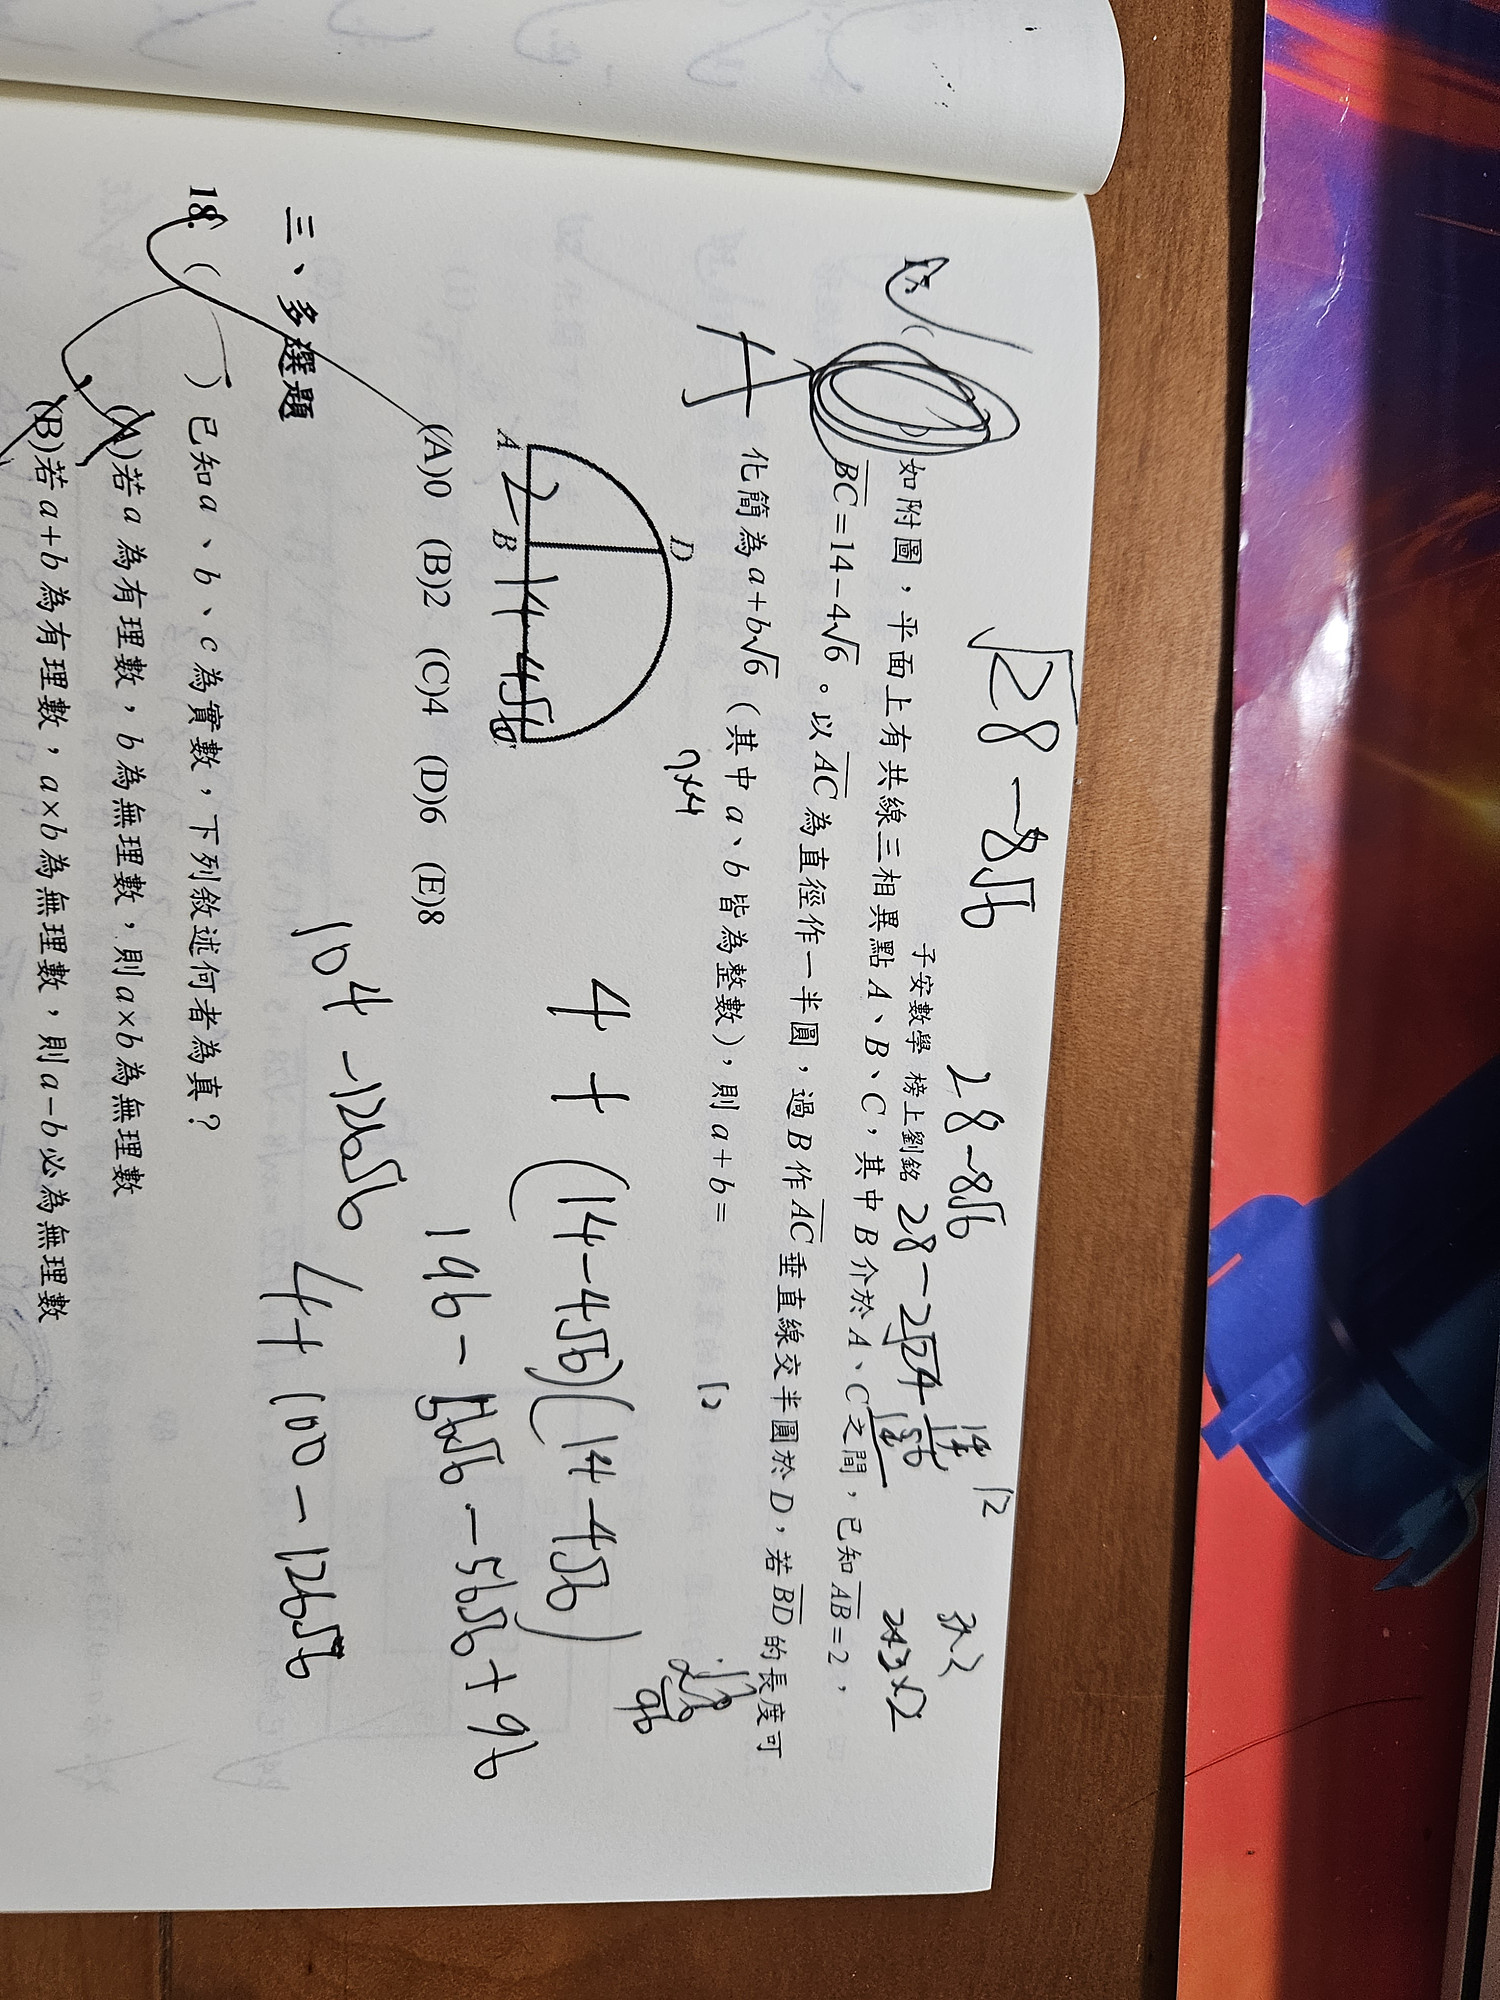 √28-8√6
28-8√6
12
子安數學 榜上劉銘
28-2√24
如附圖，平面上有共線三相異點 A、B、C，其中 B 介於 A、C 之間，已知 AB=2，
BC=14-4√6。以 AC 為直徑作一半圓，過 B 作 AC 垂直線交半圓於 D，若 BD 的長度可
化簡為 a+b√6（其中 a、b 皆為整數），則 a+b=
12
7×4
D
A
B
2
14-4√6
4+(14-4√6)(14-4√6)
96
196-56√6-56√6+96
(A)0 (B)2 (C)4 (D)6 (E)8
104-126√6
4+100-126√6
三、多選題
18. ( ) 已知 a、b、c 為實數，下列敘述何者為真？
(A)若 a 為有理數，b 為無理數，則 a×b 為無理數
(B)若 a+b 為有理數，a×b 為無理數，則 a-b 必為無理數